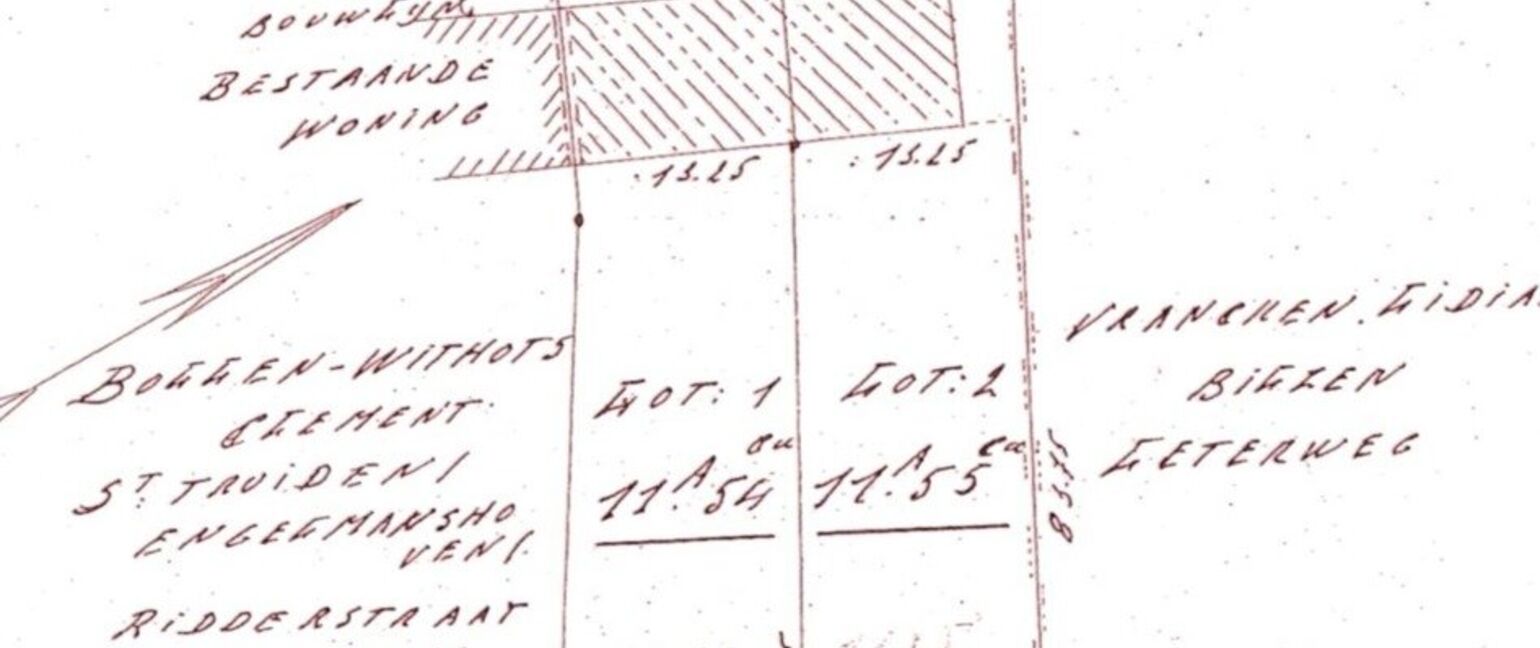 BOUWLIJN.
BESTAANDE
WONING
13.25
13.25
BOLLEN-WITHOTS
CLEMENT
ST. TRUIDEN/
ENGELMANSHO
VEN/.
RIDDERSTRAAT
LOT: 1
11.A 54 ca
LOT: 2
11.A 55 ca
83.75
VRANCKEN. LIDIA
BILZEN
LETERWEG